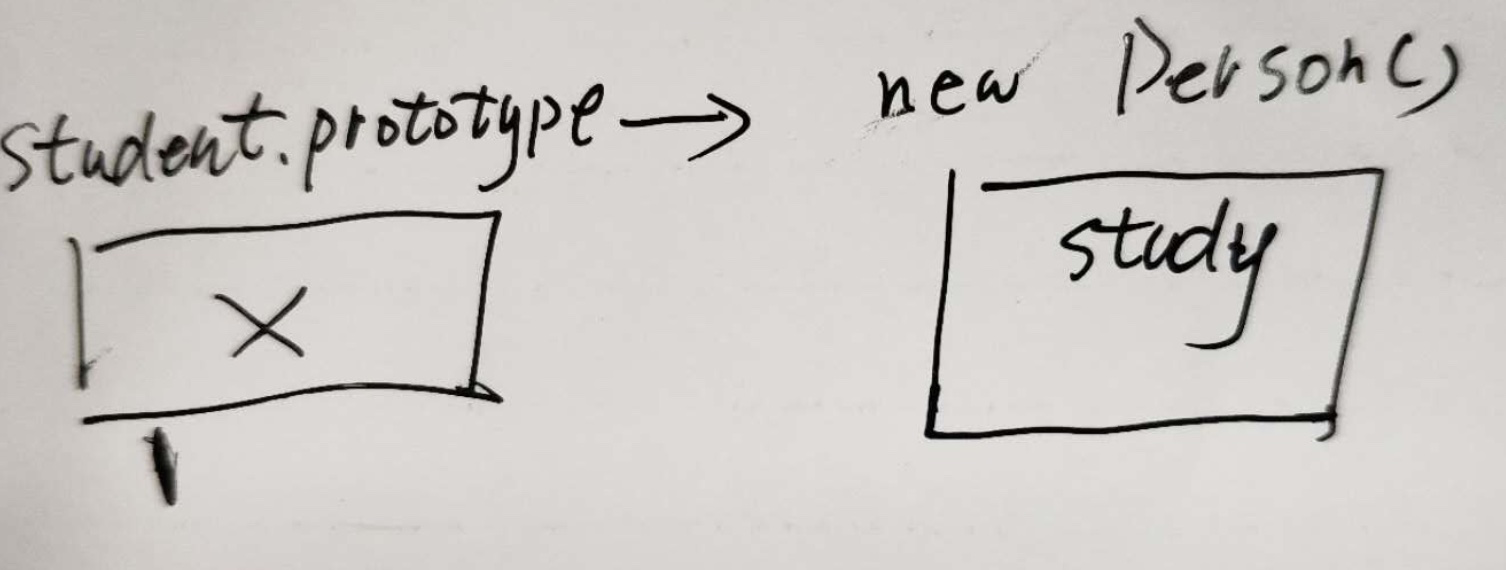 student.prototype → new Person()
X
study